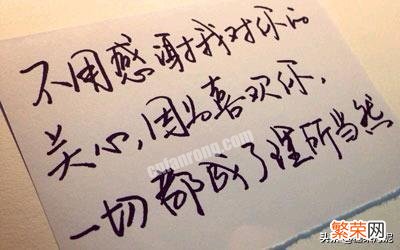 不用感谢我对你的
关心,因为喜欢你,
一切都成了理所当然
cnfanrong.com
繁荣网